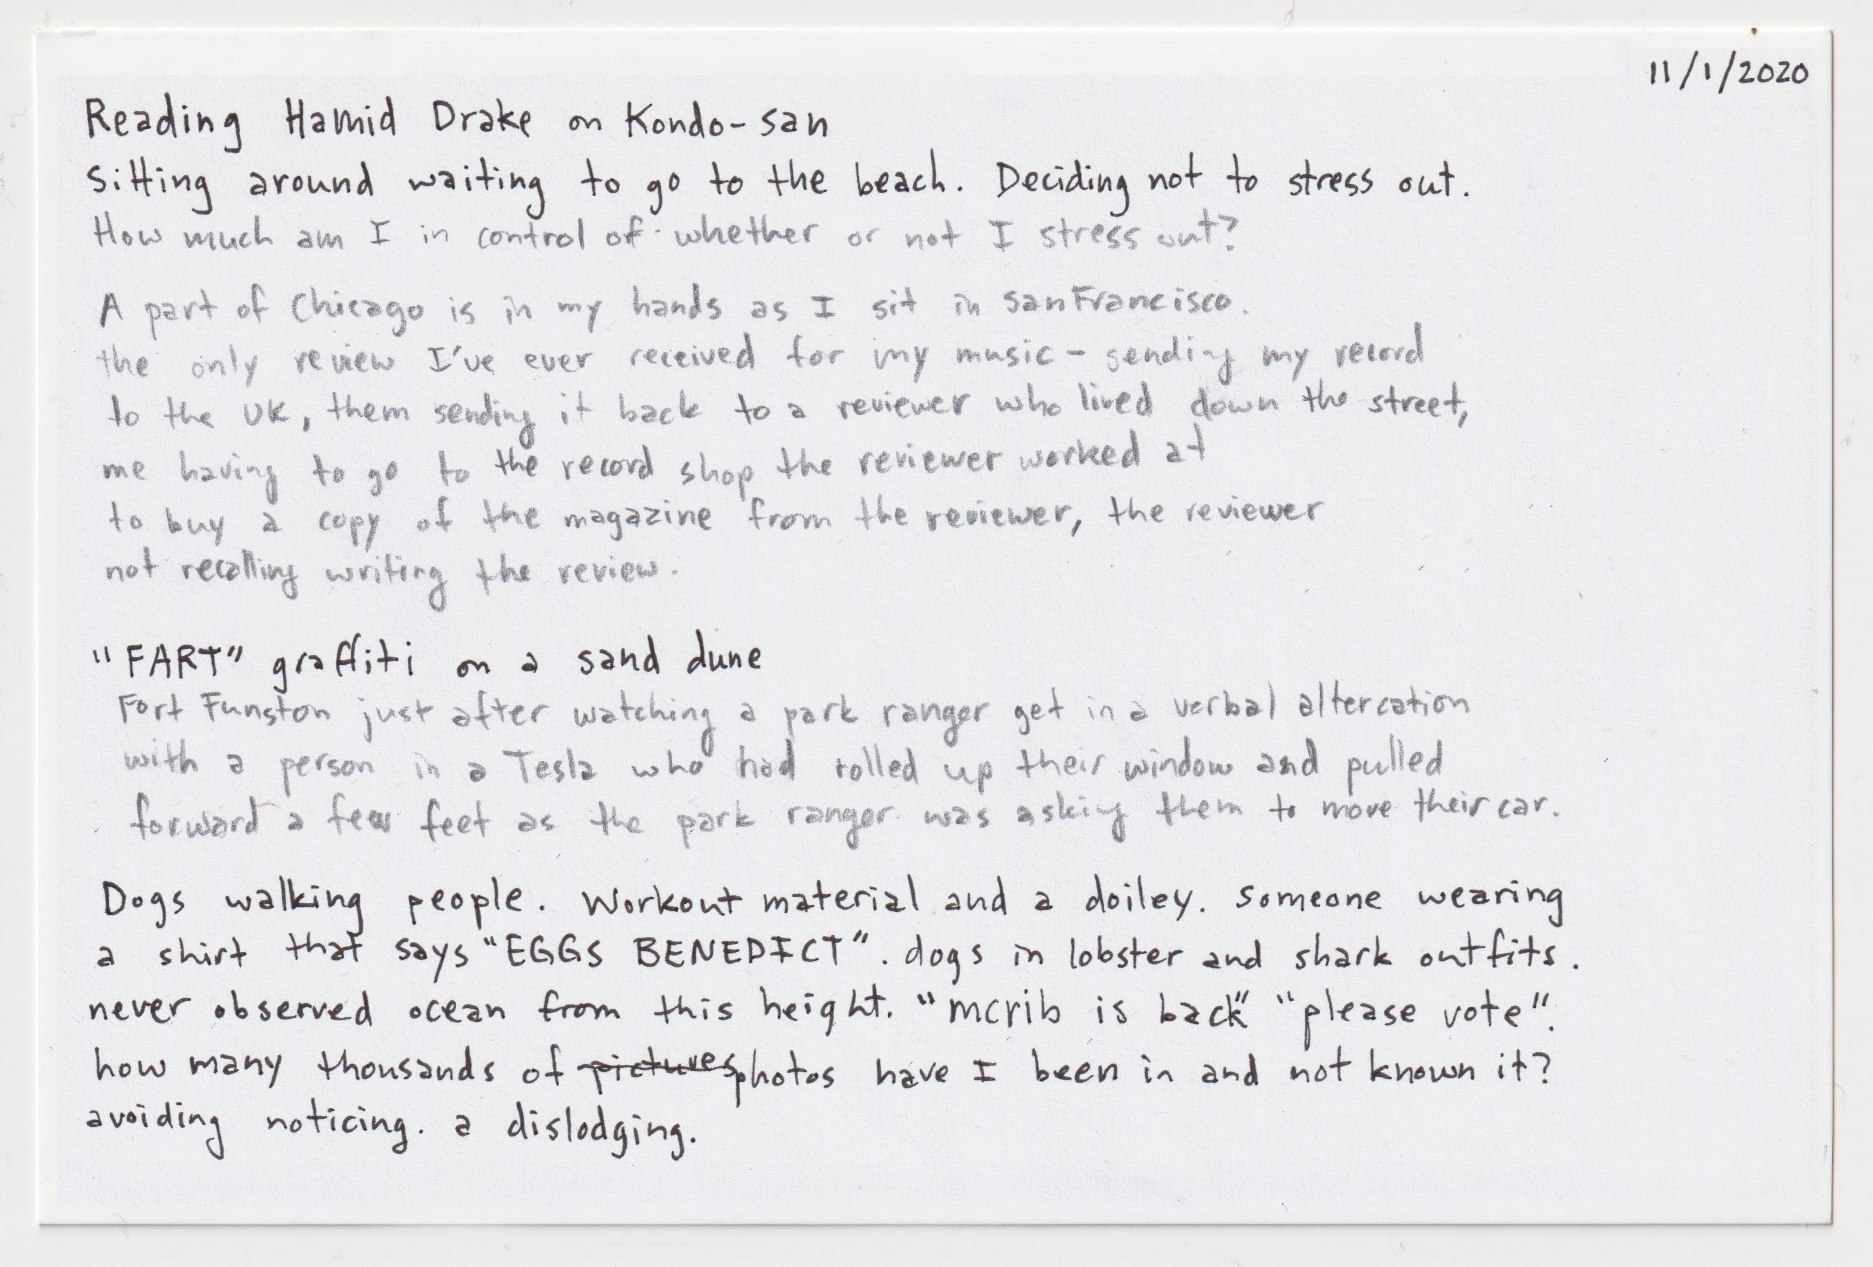 11/1/2020
Reading Hamid Drake on Kondo-san
Sitting around waiting to go to the beach. Deciding not to stress out.
How much am I in control of whether or not I stress out?
A part of Chicago is in my hands as I sit in San Francisco.
the only review I've ever received for my music - sending my record
to the UK, them sending it back to a reviewer who lived down the street,
me having to go to the record shop the reviewer worked at
to buy a copy of the magazine from the reviewer, the reviewer
not recalling writing the review.
"FART" graffiti on a sand dune
Fort Funston just after watching a park ranger get in a verbal altercation
with a person in a Tesla who had rolled up their window and pulled
forward a few feet as the park ranger was asking them to move their car.
Dogs walking people. Workout material and a doiley. Someone wearing
a shirt that says "EGGS BENEDICT". dogs in lobster and shark outfits.
never observed ocean from this height. "mcrib is back" "please vote".
how many thousands of pictures photos have I been in and not known it?
avoiding noticing. a dislodging.